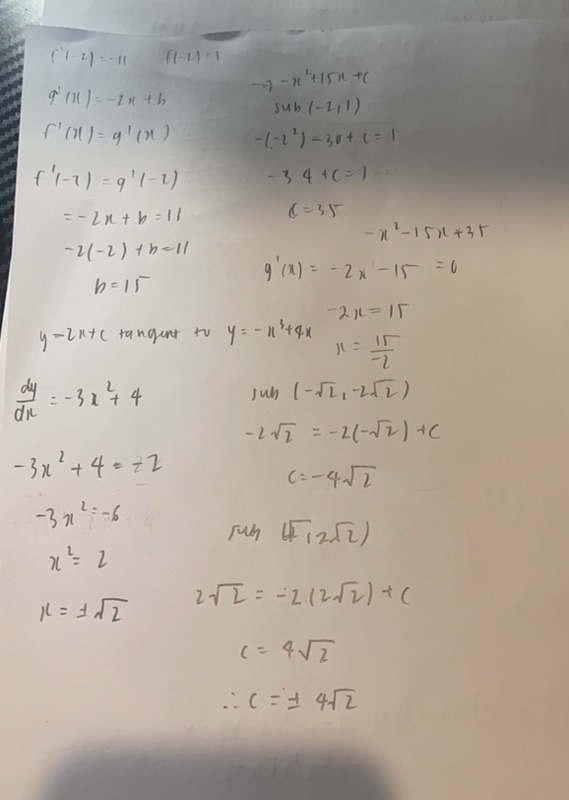 f'(-2)=-11 f(-2)=1
g'(x)=-2x+b
f'(x)=g'(x)
f'(-2)=g'(-2)
=-2x+b=11
-2(-2)+b=11
b=15
→ -x²+15x+c
sub(-2,1)
-(-2²)-30+c=1
-34+c=1
c=35
-x²-15x+35
g'(x)=-2x-15=0
-2x=15
x=15/-2
y=-2x+c tangent to y=-x³+4x
dy/dx=-3x²+4
-3x²+4=-2
-3x²=-6
x²=2
x=±√2
sub (-√2,-2√2)
-2√2=-2(-√2)+c
c=-4√2
sub (√2,2√2)
2√2=-2(2√2)+c
c=4√2
∴c=±4√2